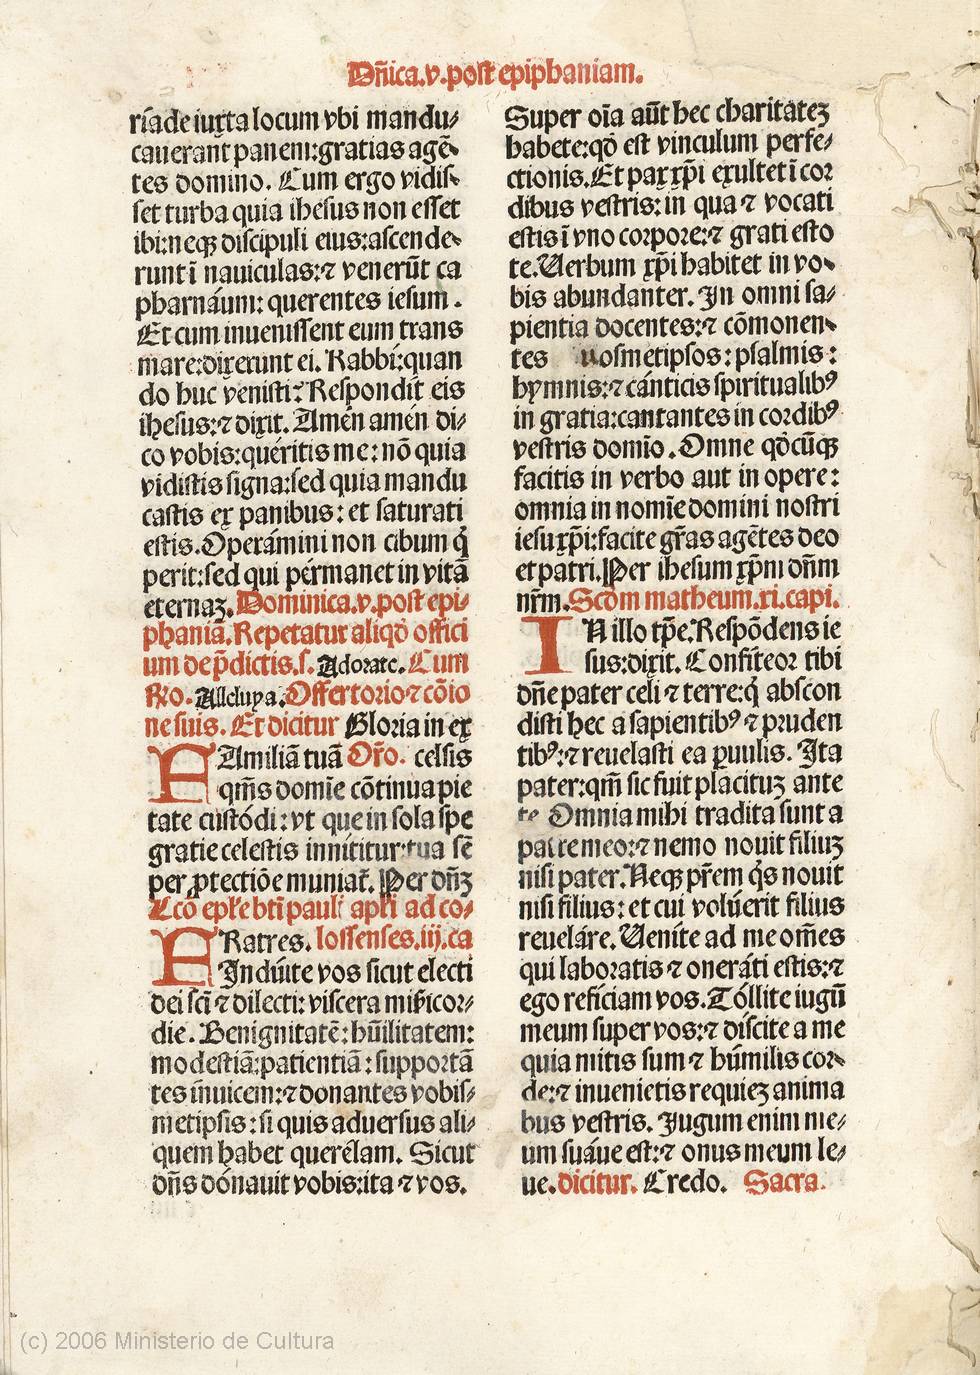 Dñica.v.post epiphaniam.
ríade iuxta locum vbi mandu⸗
cauerant panem:gratias agẽ⸗
tes domino. Cum ergo vidis⸗
set turba quia ihesus non esset
ibi:neqꝫ discipuli eius:ascende⸗
runt ĩ nauiculas:⁊ venerũt ca
pharnáum: querentes iesum .
Et cum inuenissent eum trans
mare:dixerunt ei. Rabbí:quan
do huc venisti? Respondit eis
ihesus:⁊ dixit. Amén amén di⸗
co vobis:quéritis me: nõ quia
vidistis signa:sed quia mandu
castis ex panibus: et saturati
estis.Operámini non cibum q̇
perit:sed qui pérmanet in vitã
eternaꝫ. Dominica.v.post epi⸗
phaniã.Repetatur aliqđ offici
um de p̃dictis.s. Adorate. Cum
R̃o. Alleluya. Offertorio ⁊ cõio
ne suis. Et dicitur Gloria in ex
FAmiliã tuã Or̃o. celsis
qm̃s domĩe cõtinua pie
tate custódi: vt que in sola spe
gratie celestis innititur:tua sẽ
per ꝓtectiõe muniat̃. Per dñꝫ
Lcõ epłe bti pauli apłi ad co⸗
FRatres. lossenses.iij.ca
Induĩte vos sicut electi
dei scĩ ⁊ dilecti: viscera mis̃icor⸗
die. Benignitatẽ: hũilitatem:
modestiã:patientiã: supportã
tes ĩnuicem:⁊ donantes vobis⸗
metipsis: si quis aduersus ali⸗
quem habet querélam. Sicut
dñs dónauit vobis:ita ⁊ vos.
Super oĩa aũt hec charitateꝫ
habete:qđ est vinculum perfe⸗
ctionis.Et pax xp̃i exultet ĩ cor
dibus vestris: in qua ⁊ vocati
estis ĩ vno corpore:⁊ grati esto
te.Uerbum xp̃i habitet in vo⸗
bis abundanter. In omni sa⸗
pientia docentes:⁊ cõmonen⸗
tes vosmetipsos: psalmis:
hymnis:⁊ cánticis spiritualibꝰ
in gratia:cantantes in cordibꝰ
vestris domĩo. Omne qđcũqꝫ
facitis in verbo aut in opere:
omnia in nomĩe domini nostri
iesu xp̃i:facite gr̃as agẽtes deo
et patri.Per ihesum xp̃m dñm
nr̃m. Scđm matheum.xi.capi.
IN illo tp̃e.Respõdens ie
sus:dixit. Confiteor tibi
dñe pater celi ⁊ terre:q̇ abscon
disti hec a sapientibꝰ ⁊ pruden
tibꝰ:⁊ reuelasti ea ꝑuulis. Ita
pater:qm̃ sic fuit placituꝫ ante
te Omnia mihi tradita sunt a
patre meo:⁊ nemo nouit filiuꝫ
nisi pater.Neqꝫ pr̃em q̇s nouit
nisi filius: et cui volúerit filius
reueláre. Ueníte ad me om̃es
qui laboratis ⁊ oneráti estis:⁊
ego refíciam vos. Tóllite iugũ
meum super vos:⁊ discite a me
quia mitis sum ⁊ húmilis cor⸗
de:⁊ inuenietis requieꝫ anima
bus vestris. Jugum enim me⸗
um suáue est:⁊ onus meum le⸗
ue. dicitur. Credo. Sacra.
(c) 2006 Ministerio de Cultura